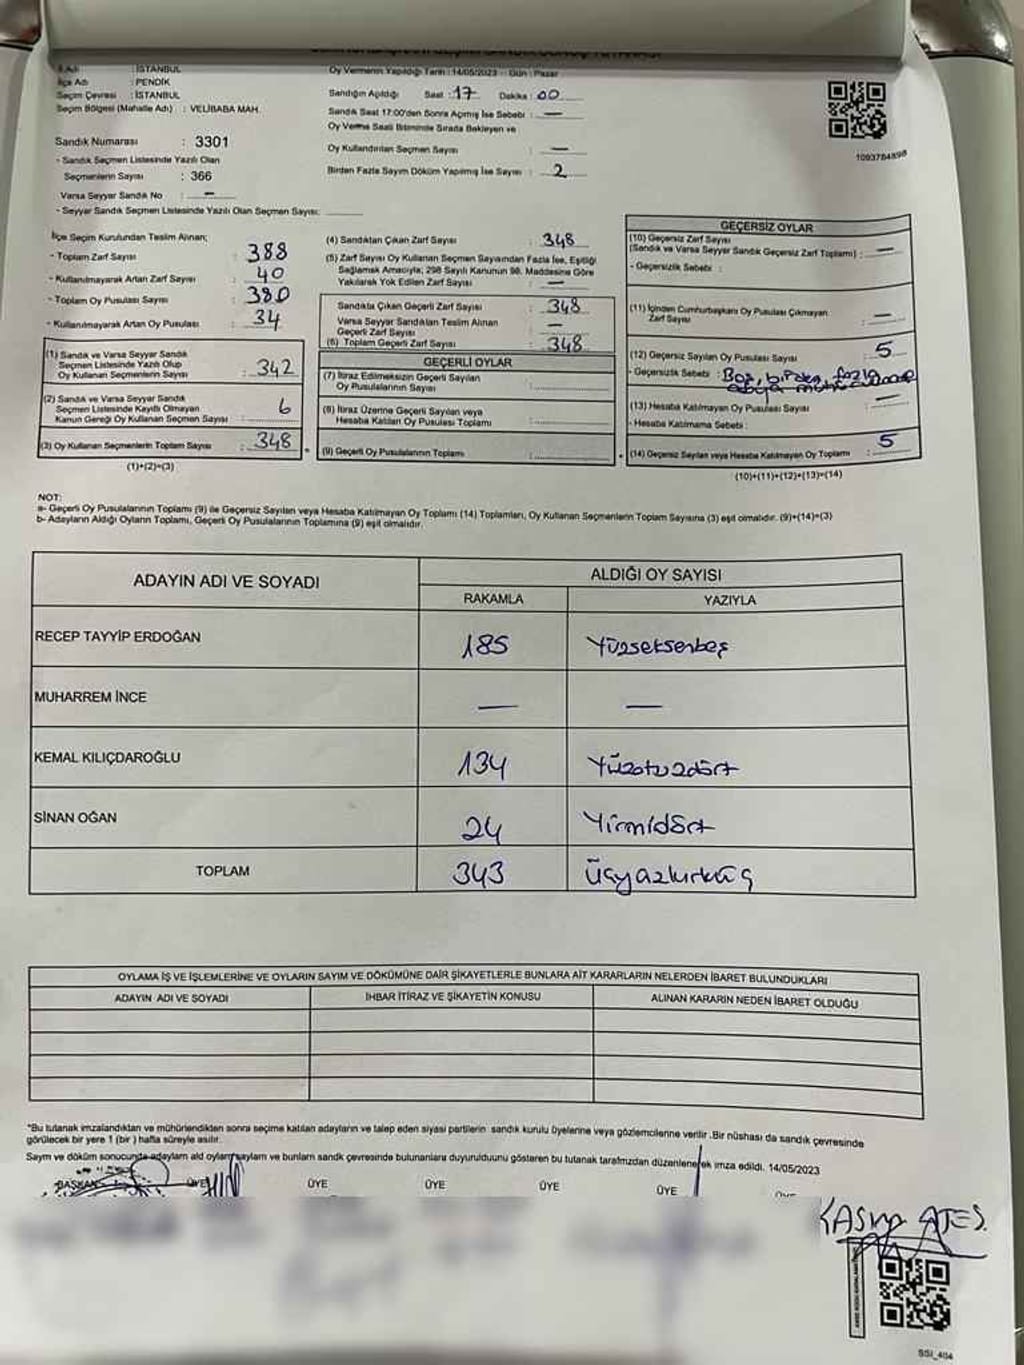 İli Adı : İSTANBUL
İlçe Adı : PENDİK
Seçim Çevresi : İSTANBUL
Seçim Bölgesi (Mahalle Adı) : VELİBABA MAH.
Sandık Numarası : 3301
- Sandık Seçmen Listesinde Yazılı Olan
Seçmenlerin Sayısı : 366
Varsa Seyyar Sandık No : —
- Seyyar Sandık Seçmen Listesinde Yazılı Olan Seçmen Sayısı:
Oy Vermenin Yapıldığı Tarih : 14/05/2023 - Gün : Pazar
Sandığın Açıldığı Saat : 17 Dakika : 00
Sandık Saat 17:00'den Sonra Açılmış İse Sebebi : —
Oy Verme Saati Bitiminde Sırada Bekleyen ve
Oy Kullandırılan Seçmen Sayısı : —
Birden Fazla Sayım Döküm Yapılmış İse Sayısı : 2
1093784898
İlçe Seçim Kurulundan Teslim Alınan;
- Toplam Zarf Sayısı : 388
- Kullanılmayarak Artan Zarf Sayısı : 40
- Toplam Oy Pusulası Sayısı : 380
- Kullanılmayarak Artan Oy Pusulası : 34
(1) Sandık ve Varsa Seyyar Sandık
Seçmen Listesinde Yazılı Olup
Oy Kullanan Seçmenlerin Sayısı : 342
(2) Sandık ve Varsa Seyyar Sandık
Seçmen Listesinde Kayıtlı Olmayan
Kanun Gereği Oy Kullanan Seçmen Sayısı : 6
(3) Oy Kullanan Seçmenlerin Toplam Sayısı : 348
(1)+(2)=(3)
(4) Sandıktan Çıkan Zarf Sayısı : 348
(5) Zarf Sayısı Oy Kullanan Seçmen Sayısından Fazla İse, Eşitliği
Sağlamak Amacıyla; 298 Sayılı Kanunun 98. Maddesine Göre
Yakılarak Yok Edilen Zarf Sayısı : —
Sandıkta Çıkan Geçerli Zarf Sayısı : 348
Varsa Seyyar Sandıktan Teslim Alınan
Geçerli Zarf Sayısı : —
(6) Toplam Geçerli Zarf Sayısı : 348
GEÇERLİ OYLAR
(7) İtiraz Edilmeksizin Geçerli Sayılan
Oy Pusulalarının Sayısı :
(8) İtiraz Üzerine Geçerli Sayılan veya
Hesaba Katılan Oy Pusulası Toplamı :
(9) Geçerli Oy Pusulalarının Toplamı :
GEÇERSİZ OYLAR
(10) Geçersiz Zarf Sayısı
(Sandık ve Varsa Seyyar Sandık Geçersiz Zarf Toplamı) : —
- Geçersizlik Sebebi :
(11) İçinden Cumhurbaşkanı Oy Pusulası Çıkmayan
Zarf Sayısı : —
(12) Geçersiz Sayılan Oy Pusulası Sayısı : 5
- Geçersizlik Sebebi : Boş, birden fazla
(13) Hesaba Katılmayan Oy Pusulası Sayısı : —
- Hesaba Katılmama Sebebi :
(14) Geçersiz Sayılan veya Hesaba Katılmayan Oy Toplamı : 5
(10)+(11)+(12)+(13)=(14)
NOT:
a- Geçerli Oy Pusulalarının Toplamı (9) ile Geçersiz Sayılan veya Hesaba Katılmayan Oy Toplamı (14) Toplamları, Oy Kullanan Seçmenlerin Toplam Sayısına (3) eşit olmalıdır. (9)+(14)=(3)
b- Adayların Aldığı Oyların Toplamı, Geçerli Oy Pusulalarının Toplamına (9) eşit olmalıdır.
ADAYIN ADI VE SOYADI
ALDIĞI OY SAYISI
RAKAMLA YAZIYLA
RECEP TAYYİP ERDOĞAN 185 Yüzseksenbeş
MUHARREM İNCE — —
KEMAL KILIÇDAROĞLU 134 Yüzotuzdört
SİNAN OĞAN 24 Yirmidört
TOPLAM 343 Üçyüzkırküç
OYLAMA İŞ VE İŞLEMLERİNE VE OYLARIN SAYIM VE DÖKÜMÜNE DAİR ŞİKAYETLERLE BUNLARA AİT KARARLARIN NELERDEN İBARET BULUNDUKLARI
ADAYIN ADI VE SOYADI İHBAR İTİRAZ VE ŞİKAYETİN KONUSU ALINAN KARARIN NEDEN İBARET OLDUĞU
*Bu tutanak imzalandıktan ve mühürlendikten sonra seçime katılan adayların ve talep eden siyasi partilerin sandık kurulu üyelerine veya gözlemcilerine verilir. Bir nüshası da sandık çevresinde
görülecek bir yere 1 (bir) hafta süreyle asılır.
Sayım ve döküm sonucunda adayların aldı oyların sayılam ve bunların sandk çevresinde bulunanlara duyurulduunu gösteren bu tutanak tarafımzdan düzenlenerek imza edildi. 14/05/2023
BAŞKAN ÜYE ÜYE ÜYE ÜYE ÜYE ÜYE
KASIM ATEŞ
SSI_404